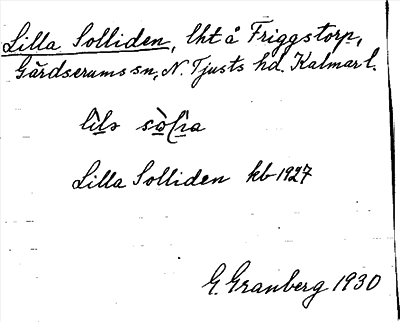 Lilla Solliden, lht å Friggstorp,
Gärdserums sn, N. Tjusts hd. Kalmar l.
Lilla Solliden kb 1927
G. Granberg 1930